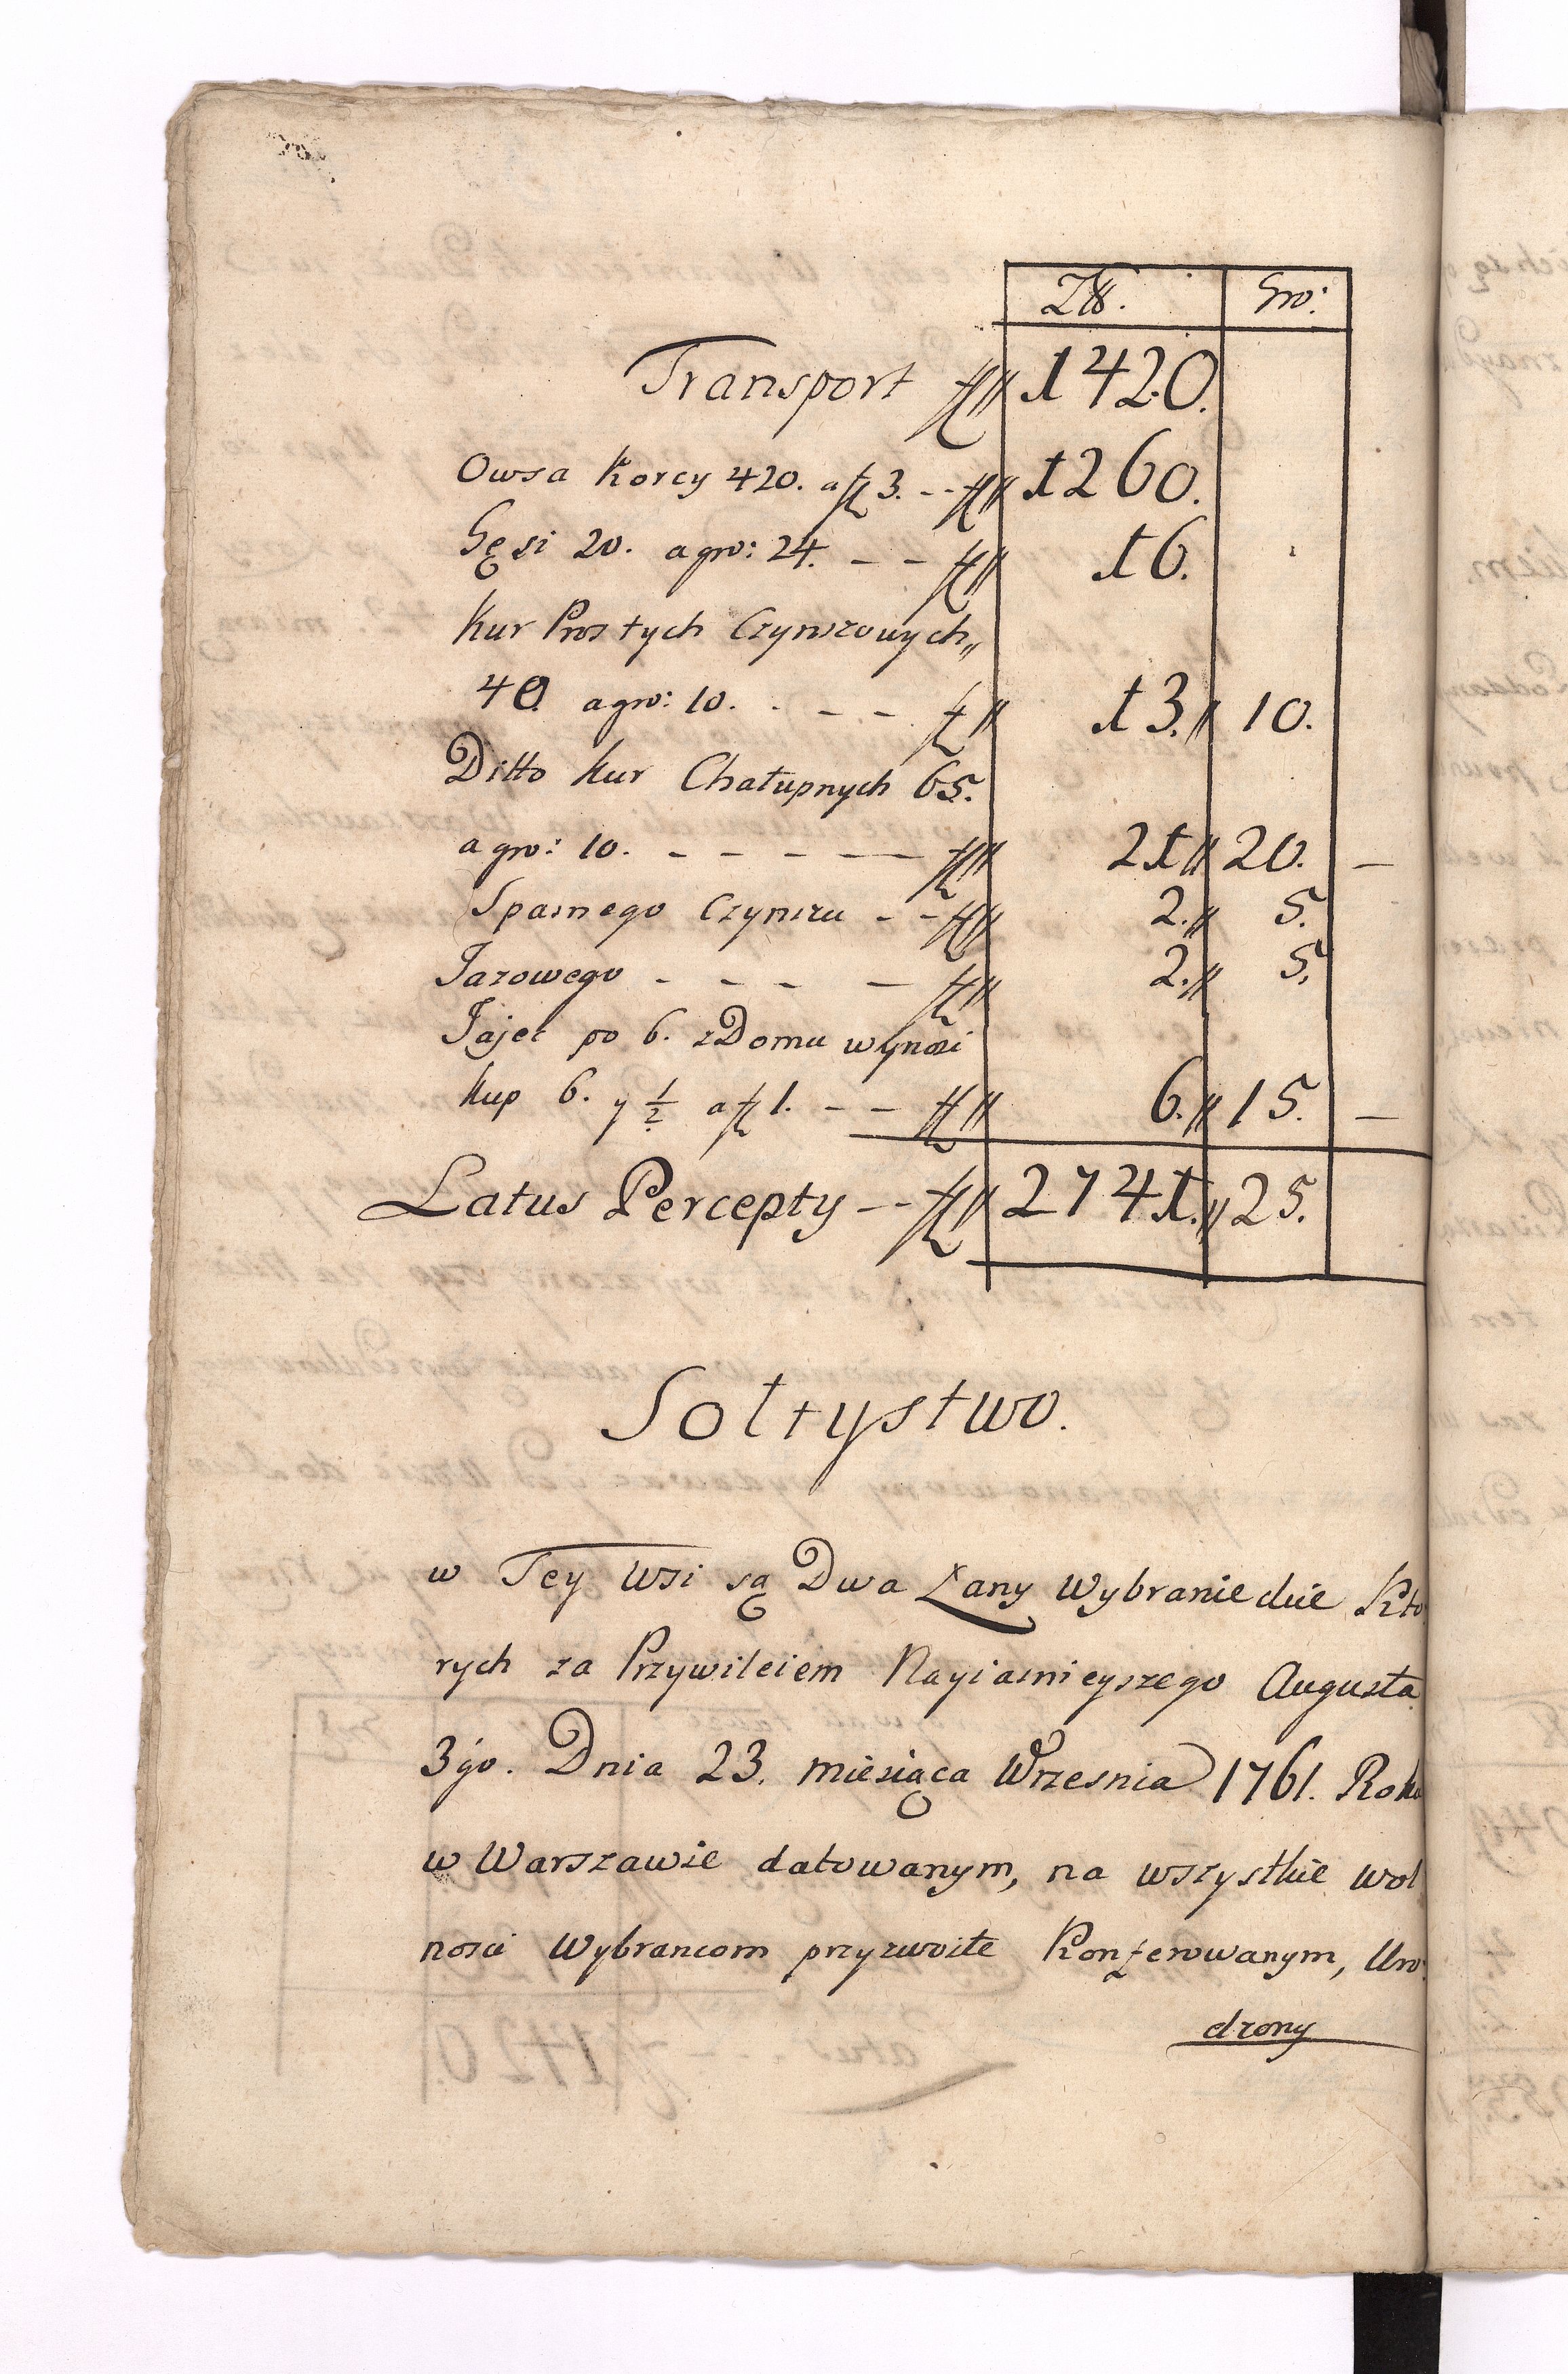 Złł. Gro:
Transport fl // 1420.
Owsa Korcy 420. a fl 3. -- fl // 1260.
Gęsi 20. a gro: 24. -- fl // 16.
Kur Prostych Czynszowych //
40. a gro: 10. - - - fl // 13. // 10.
Ditto Kur Chałupnych 65.
a gro: 10. - - - - - fl // 21 // 20. -
Spasnego Czynszu - - fl // 2. // 5.
Jazowego - - - - fl // 2. // 5.
Jajec po 6. z Domu wynosi
Kup 6. y ½ a fl 1. - - fl // 6. // 15. -
Latus Percepty -- fl // 2741. // 25.
Sołtystwo.
w Tey Wsi są Dwa Łany Wybranieckie Kto
rych za Przywileiem Nayiasnieyszego Augusta
3go. Dnia 23. miesiąca Wrzesnia 1761. Roku
w Warszawie datowanym, na wszystkie wol
nosci Wybrancom przyzwoite Konferowanym, Uro
dzony